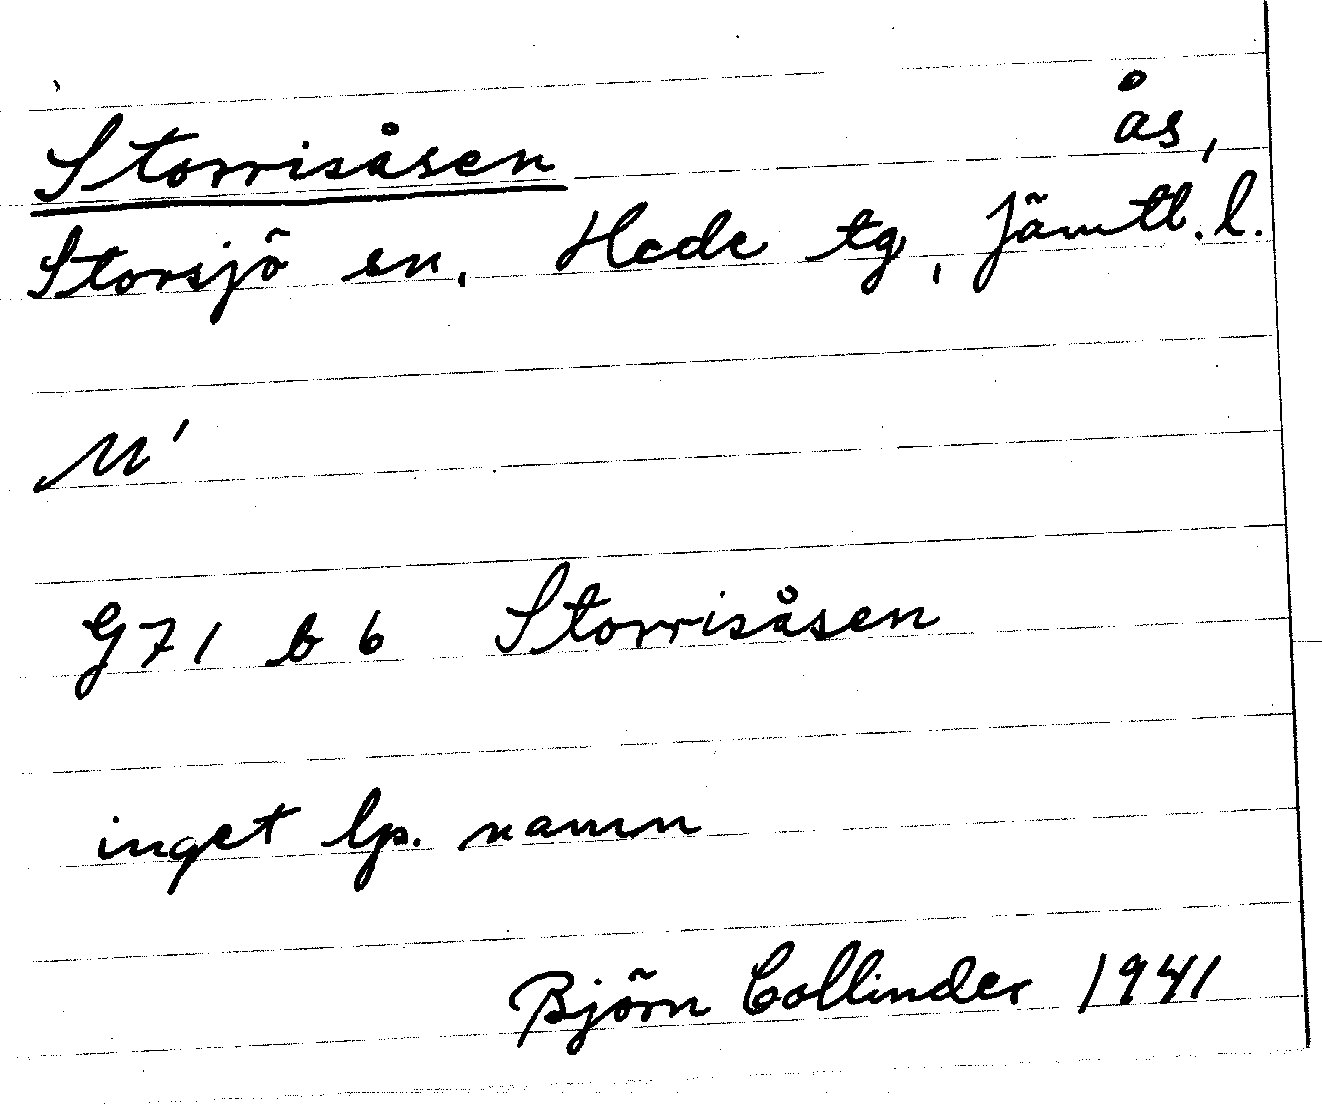 Storrisåsen ås,
Storsjö sn, Hede tg, Jämtl. l.
M'
G71 b 6 Storrisåsen
inget lp. namn
Björn Collinder 1941